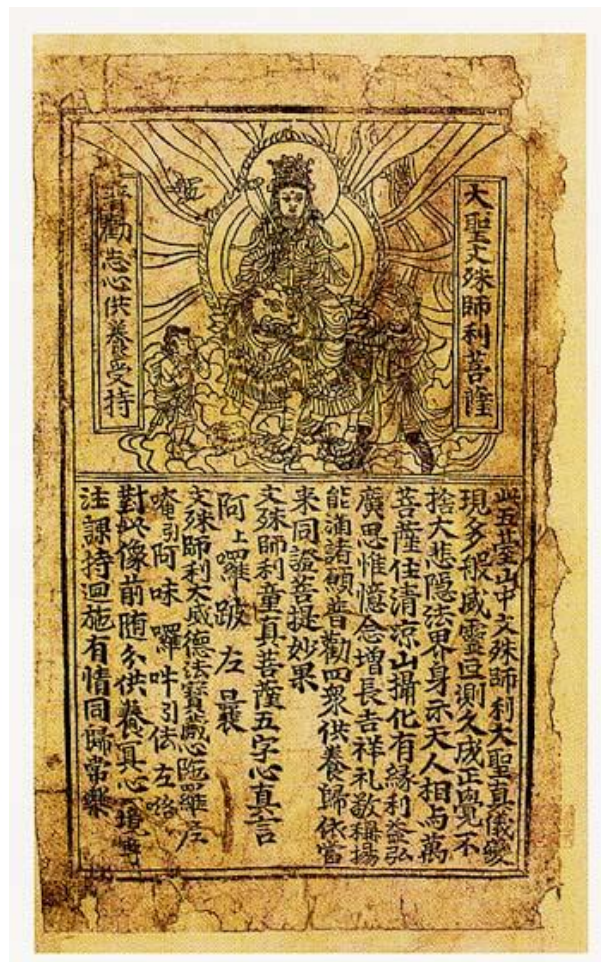 大聖文殊師利菩薩
普勸志心供養受持
此五臺山中文殊師利大聖真儀變
現多般威靈叵測久成正覺不
捨大悲隱法界身示天人相与萬
菩薩住清涼山攝化有緣利益弘
廣思惟憶念增長吉祥礼敬稱揚
能滿諸願普勸四衆供養歸依當
来同證菩提妙果
文殊師利童真菩薩五字心真言
阿上囉跛左曩
文殊師利大威德法寶藏心陁羅尼
唵引阿味囉吽引佉左咯
對此像前随分供養冝心一境專
注課持迴施有情同歸常樂